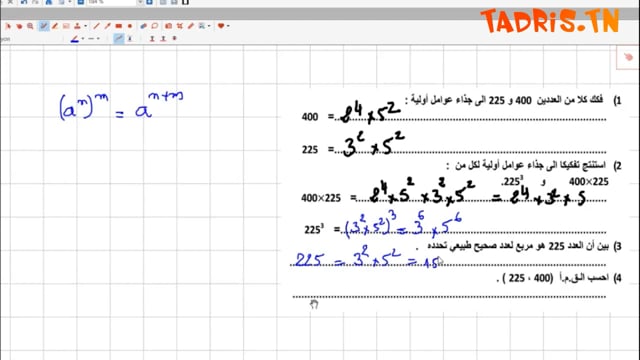 TADRIS.TN
(aⁿ)ᵐ = aⁿ⁺ᵐ
1) فكك كلا من العددين 400 و 225 الى جذاء عوامل أولية :
400 = 2⁴ × 5²
225 = 3² × 5²
2) استنتج تفكيكا الى جذاء عوامل أولية لكل من :
400×225 و 225³.
400×225 = 2⁴ × 5² × 3² × 5² = 2⁴ × 3² × 5
225³ = (3² × 5²)³ = 3⁶ × 5⁶
3) بين أن العدد 225 هو مربع لعدد صحيح طبيعي تحدده .
225 = 3² × 5² = 15
4) احسب الـق.م.أ (400 ، 225) .